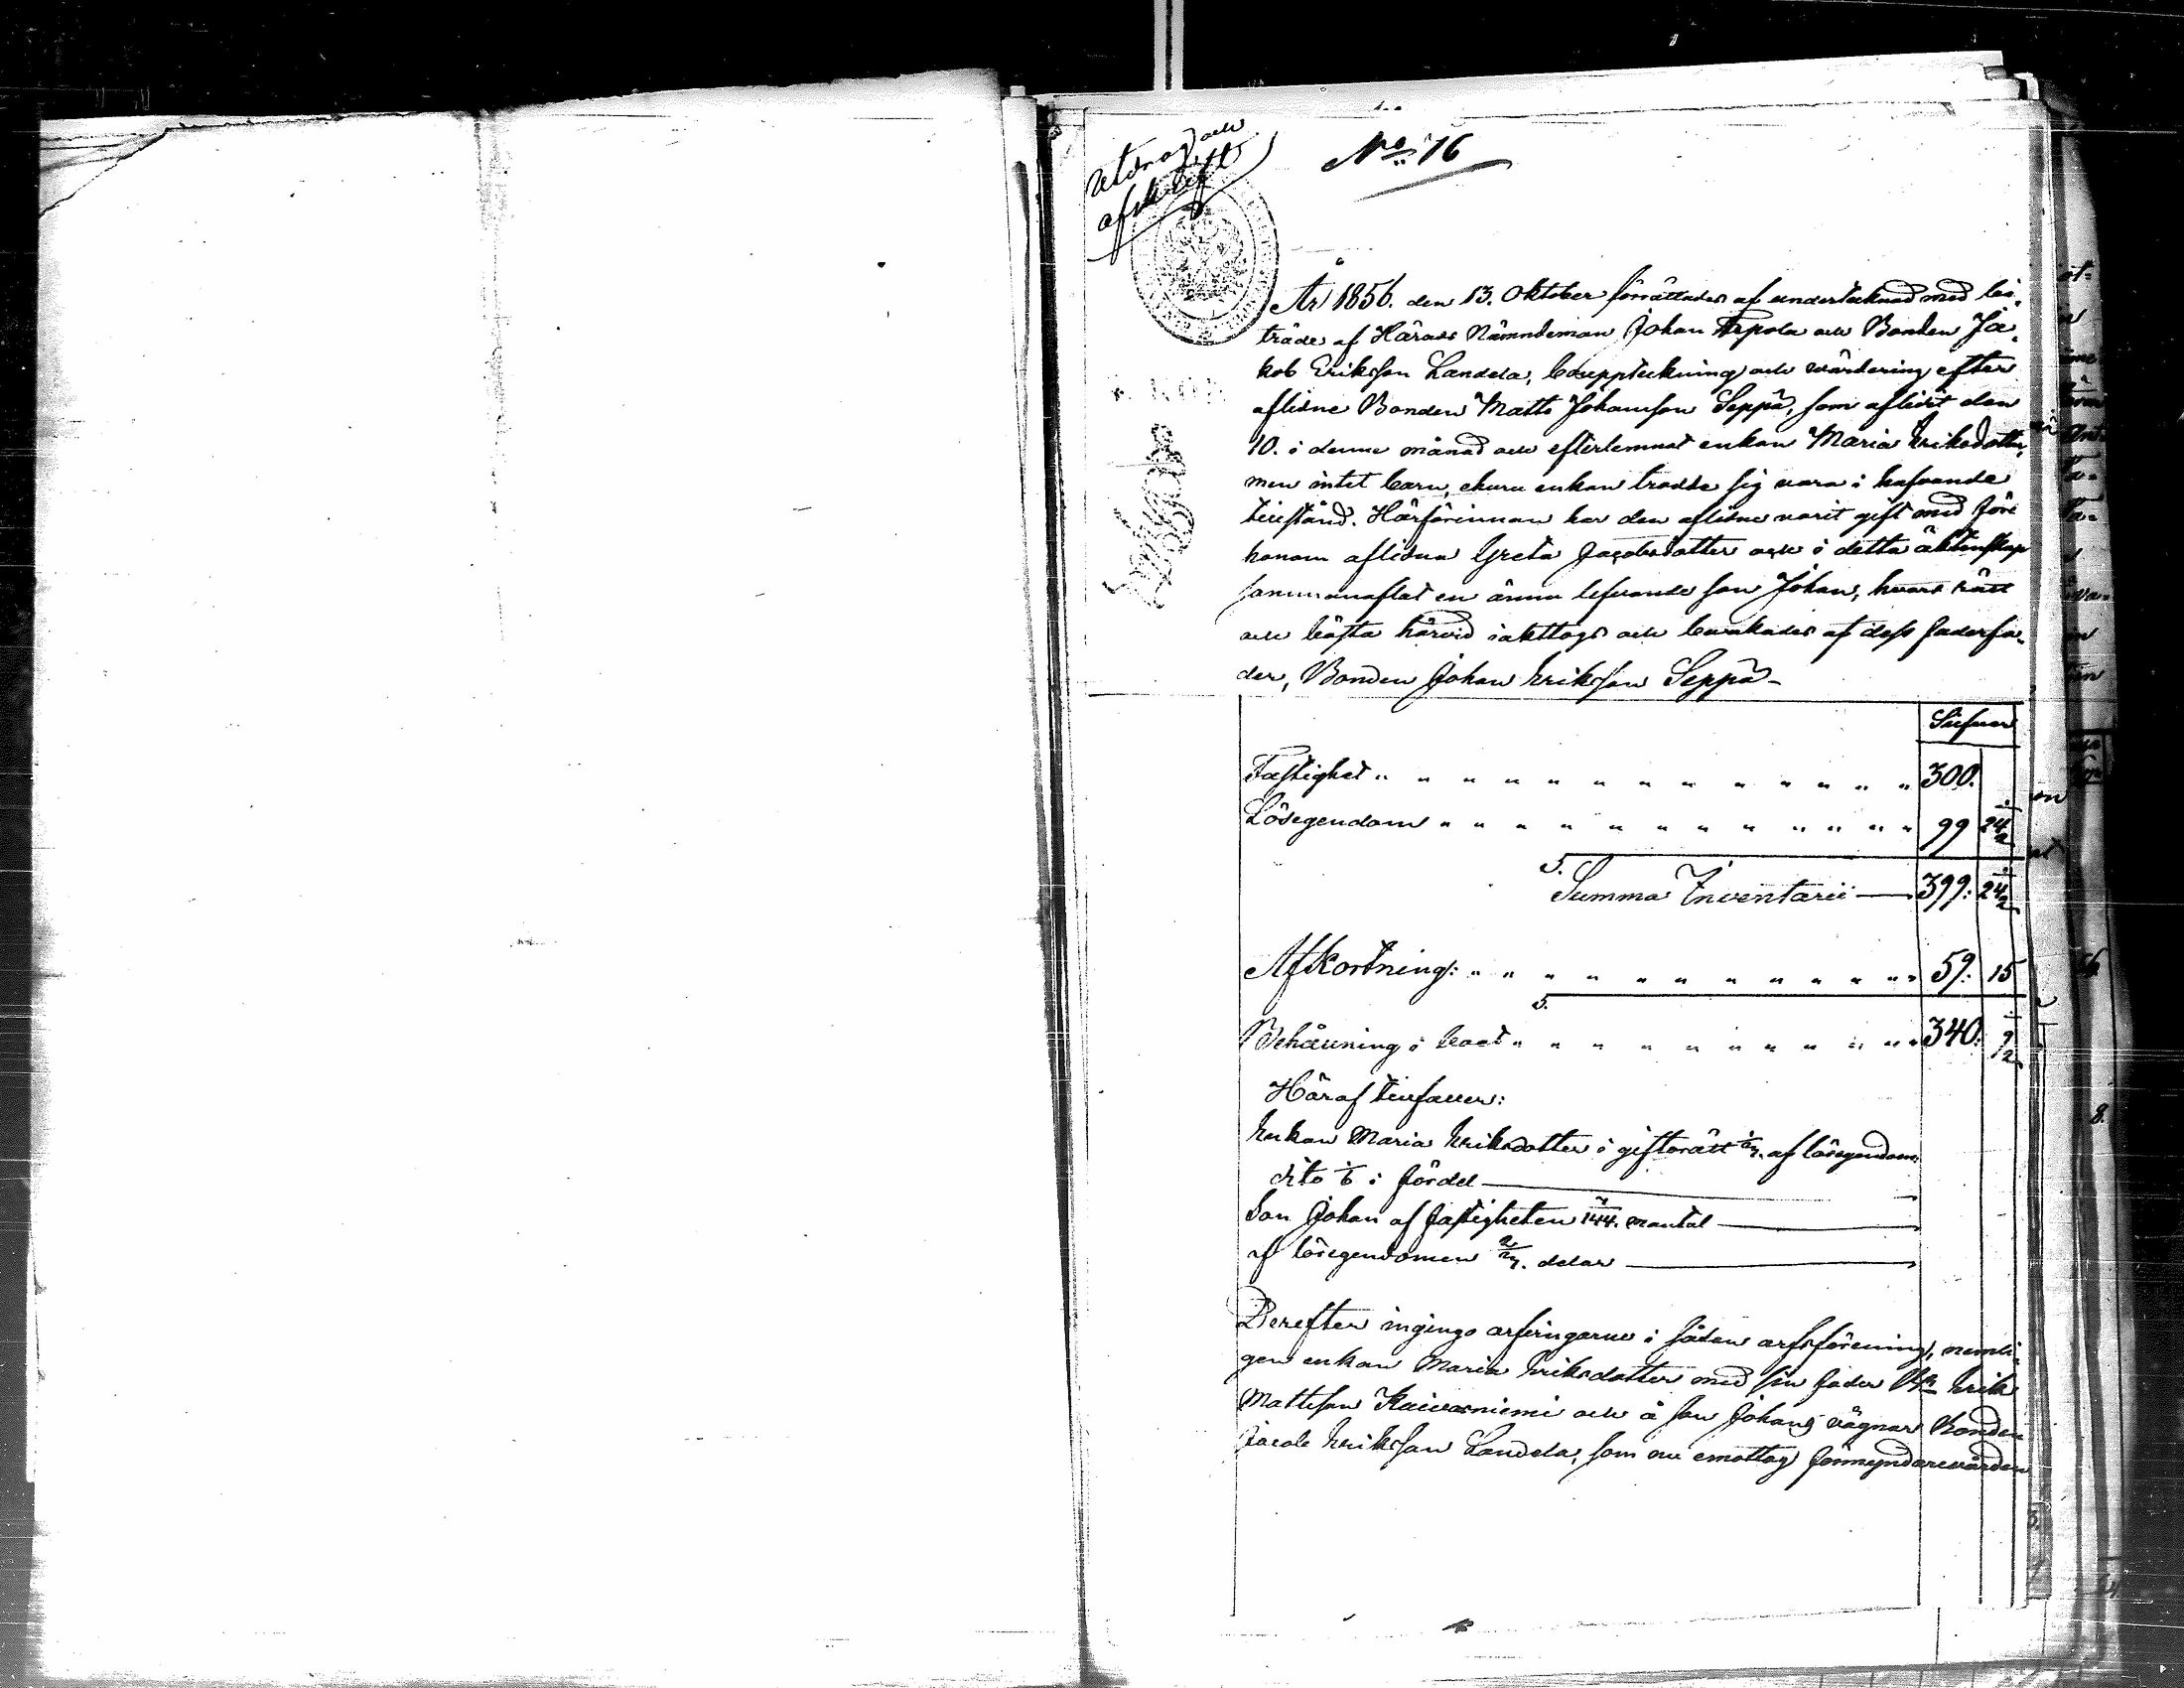 Utdrag och
afskrift
No 16
År 1856. den 13. Oktober förrättades af undertecknad med bi-
träde af Härads Nämndeman Johan Arpola och Bonden Ja-
kob Eriksson Landela, bouppteckning och värdering efter
aflidne Bonden Matts Johansson Seppä, som aflidit den
10. i denne månad och efterlemnat enkan Maria Eriksdotter,
men intet barn, ehuru enkan trodde sig vara i hafvande
tillstånd. Härförinnan har den aflidne varit gift med före
honom aflidna Greta Jacobsdotter och i detta äktenskap
sammanaflat en ännu lefvande son Johan, hvars rätt
och bästa härvid iakttogs och bevakades af dess faderfa-
der, Bonden Johan Eriksson Seppä
Silfver
Fastighet 300.
Lösegendom 99 24 1/2
S.
Summa Inventarii 399: 24 1/2
Afkortning: 59: 15
S.
Behållning i boet 340: 9 1/2
Häraf tillfaller:
Enkan Maria Eriksdotter i giftorätt 1/3. af lösegendom
dito 1/6 i fördel
Son Johan af fastigheten 7/144. mantal
af lösegendomen 2/3. delar
Derefter ingingo arfvingarne i sådan arfsförening, nemli-
gen enkan Maria Eriksdotter med sin fader Bn Erik
Mattsson Kaivosniemi och å son Johans vägnar Bonden
Jacob Eriksson Landela, som nu emottog förmyndarevården